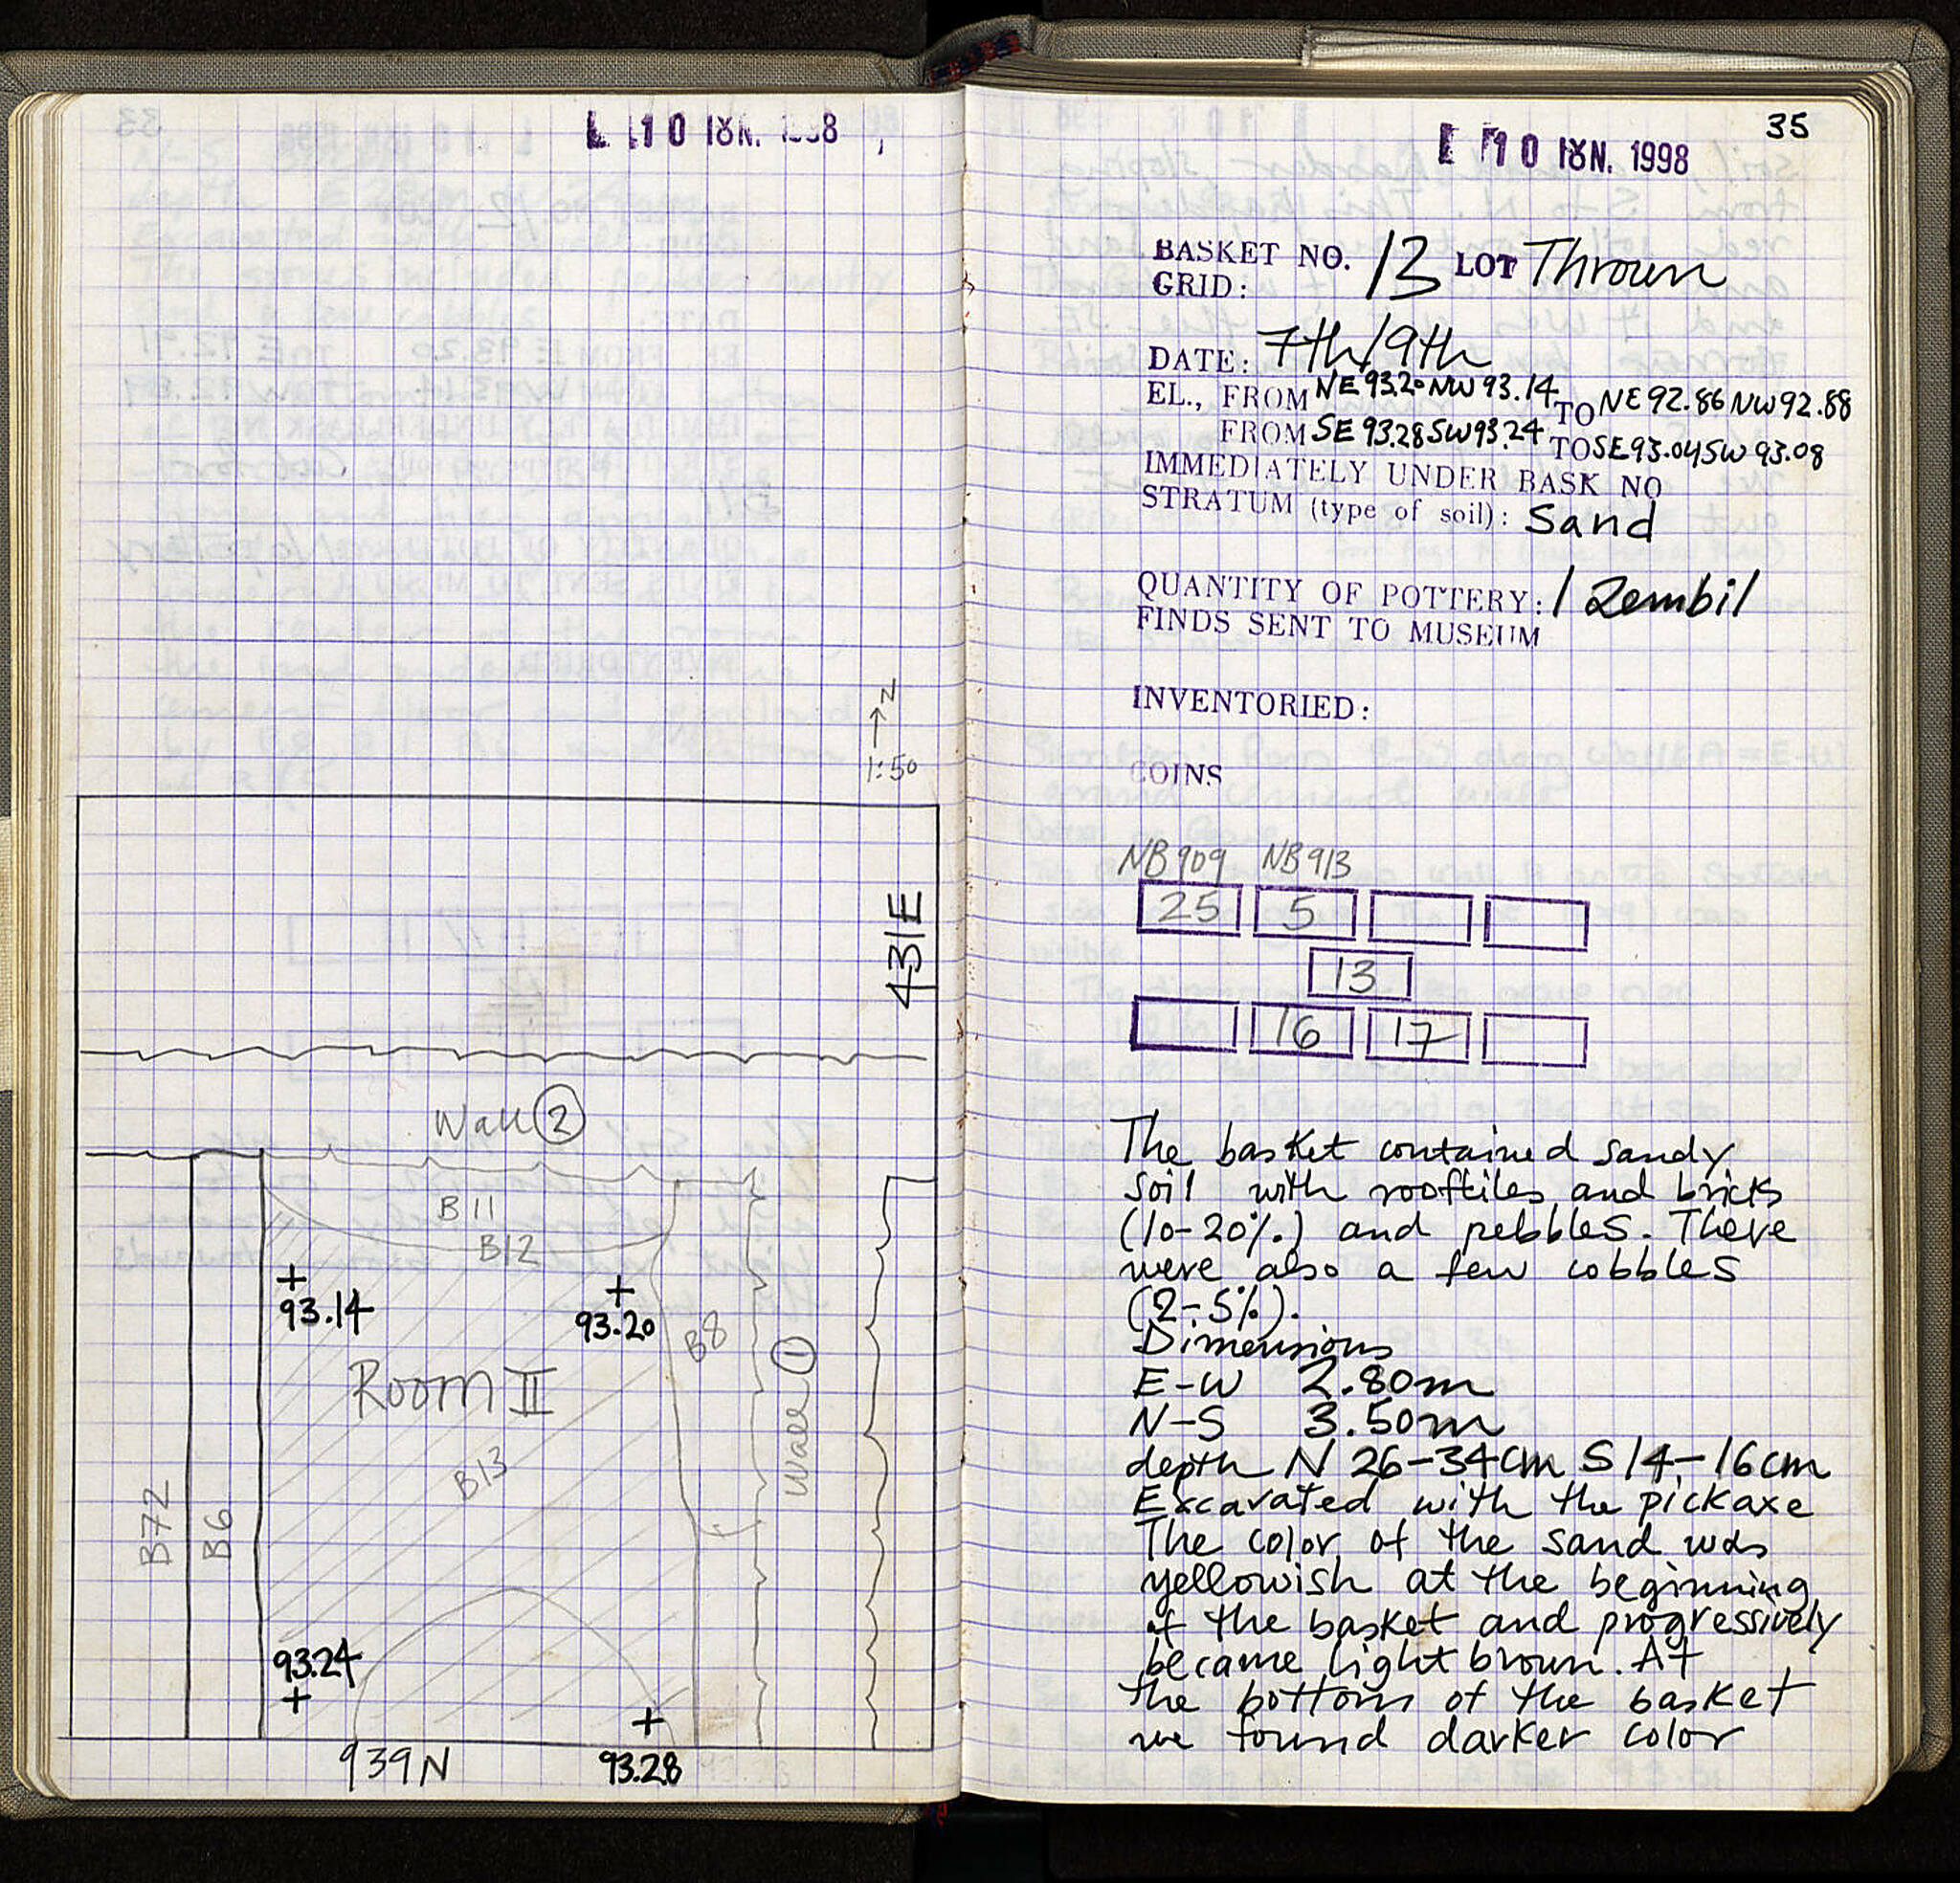 10 ΙΟΥΝ. 1998
N
1:50
431E
Wall 2
B11
B12
93.14
93.20
B8
Room II
Wall 1
B13
B72
B6
93.24
939N
93.28
35
10 ΙΟΥΝ. 1998
BASKET NO. 13 LOT Thrown
GRID:
DATE: 7th/9th
EL., FROM NE 93.20 NW 93.14 TO NE 92.86 NW 92.88
FROM SE 93.28 SW 93.24 TO SE 93.04 SW 93.08
IMMEDIATELY UNDER BASK NO
STRATUM (type of soil): Sand
QUANTITY OF POTTERY: 1 Zembil
FINDS SENT TO MUSEUM
INVENTORIED:
COINS
NB909 NB913
25 5
13
16 17
The basket contained sandy
soil with rooftiles and bricks
(10-20%) and pebbles. There
were also a few cobbles
(2-5%).
Dimensions
E-W 2.80m
N-S 3.50m
depth N 26-34cm S 14-16cm
Excavated with the pickaxe
The color of the sand was
yellowish at the beginning
of the basket and progressively
became light brown. At
the bottom of the basket
we found darker color